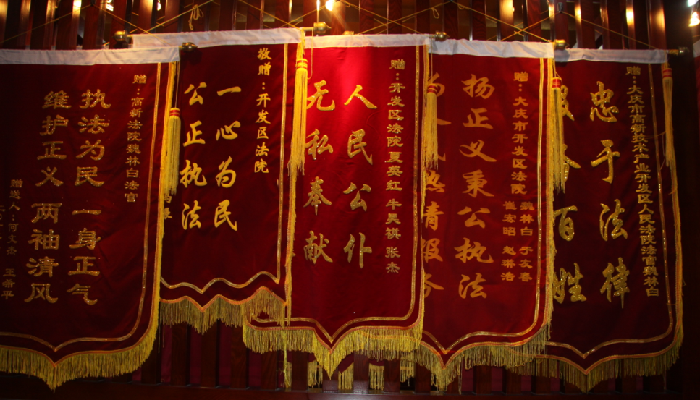 赠：高新法院魏林白法官
执法为民 一身正气
维护正义 两袖清风
敬赠：开发区法院
一心为民
公正执法
赠：开发区法院 夏英虹 牛昊旗 张杰
人民公仆
无私奉献
赠：大庆市开发区法院 魏林白
扬正义秉公执法
情服务
赠：大庆市高新技术产业开发区人民法院法官魏林白
忠于法律
服务百姓